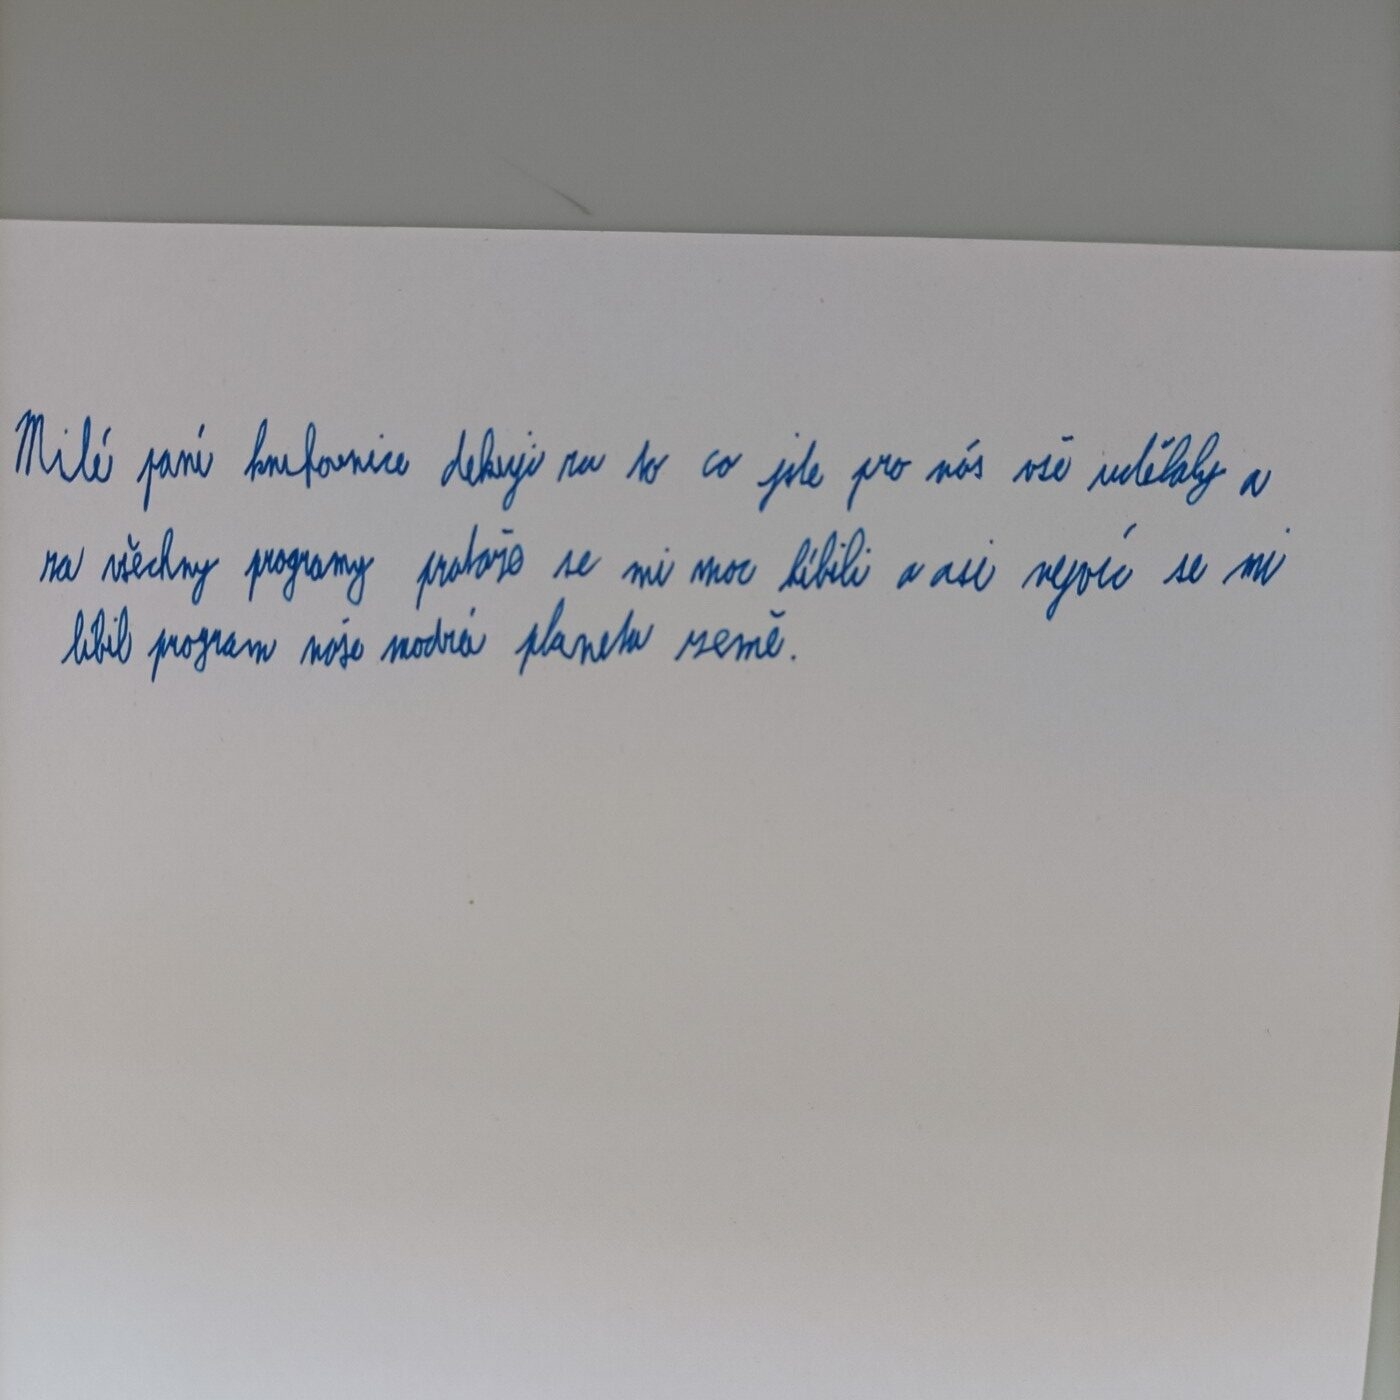 Milé paní knihovnice dekuji za to co jste pro nás vše udělaly a
za všechny programy protože se mi moc líbili a asi nejvíc se mi
líbil program náše modrá planeta země.